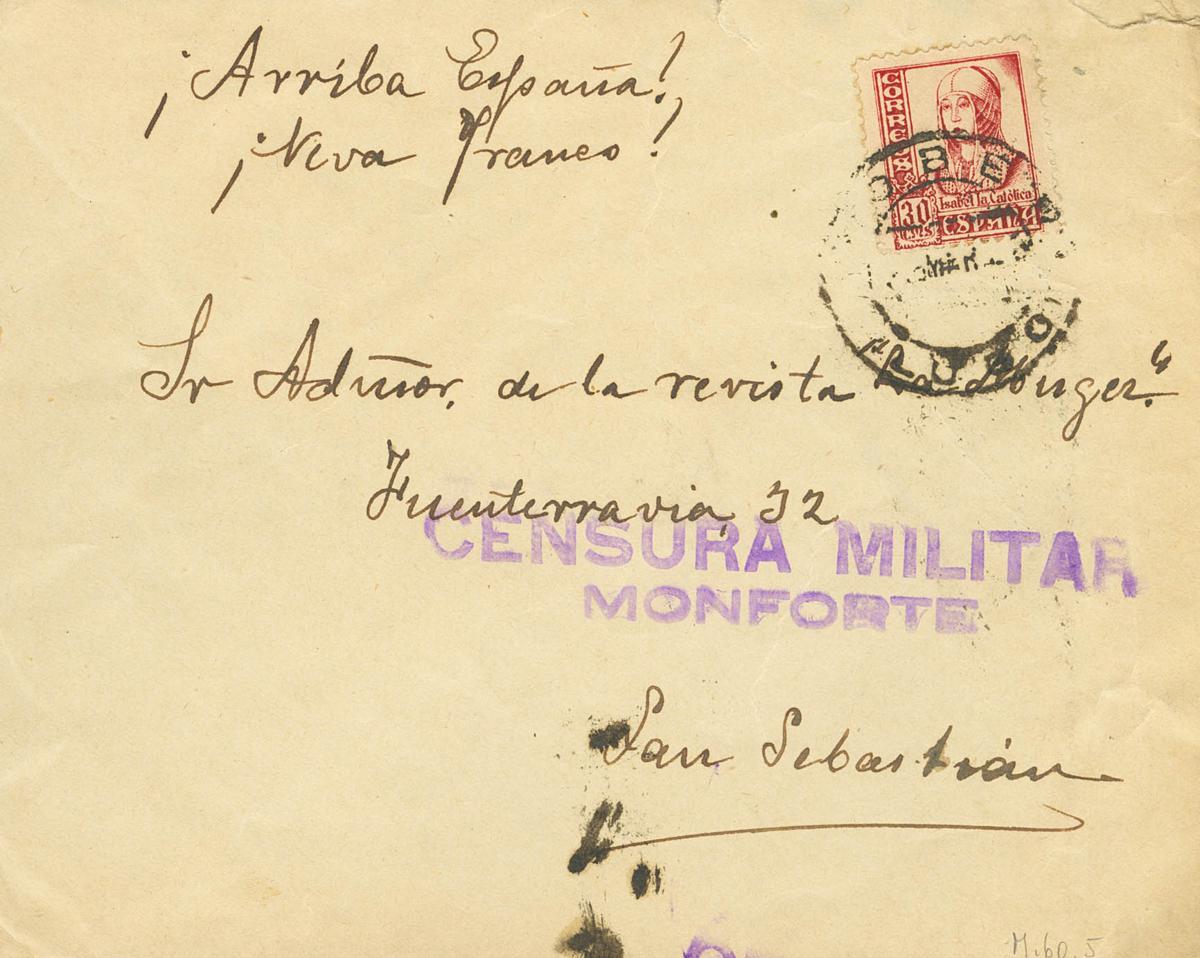 ¡Arriba España!,
¡Viva Franco!
CORREOS
30
CTMS
Isabel la Católica
ESPAÑA
OBE
MAR
RUBO
Sr Admor. de la revista
Fuenterravia, 32
CENSURA MILITAR
MONFORTE
San Sebastián